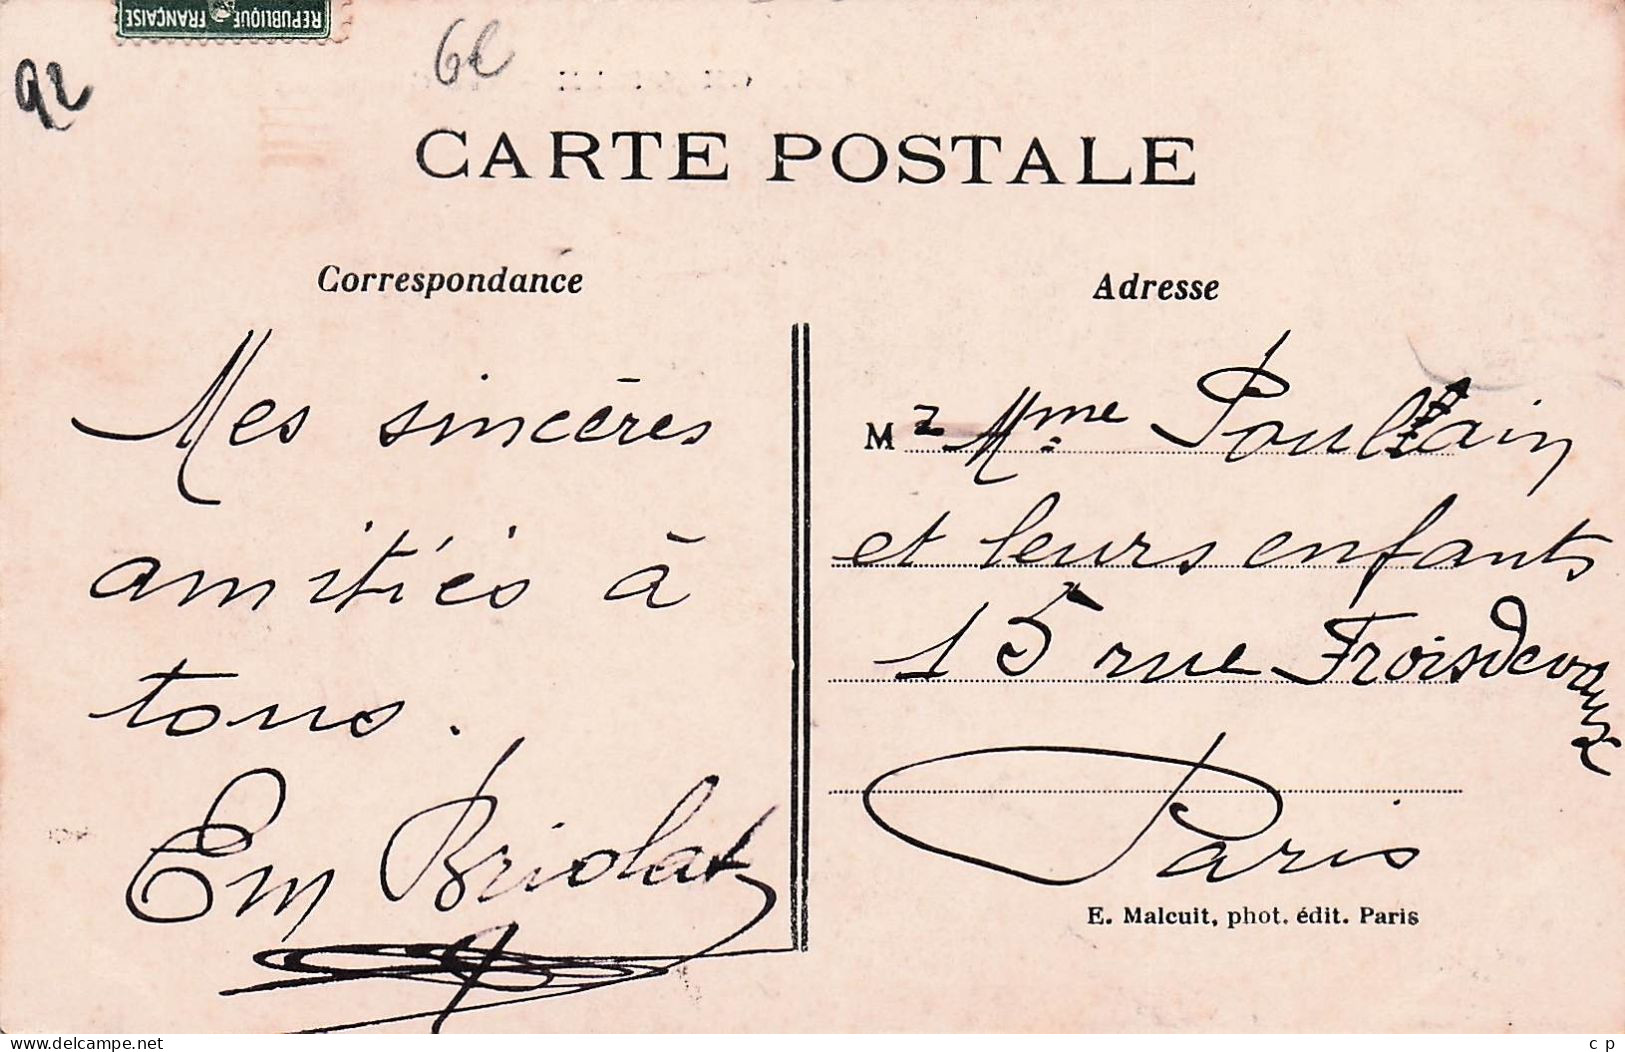 REPUBLIQUE FRANÇAISE
92
6€
CARTE POSTALE
Correspondance
Adresse
Mes sincères
amitiés à
tous.
Em Briolat
M r Mme Poullain
et leurs enfants
15 rue Froisdevaux
Paris
E. Malcuit, phot. édit. Paris
www.delcampe.net
c p